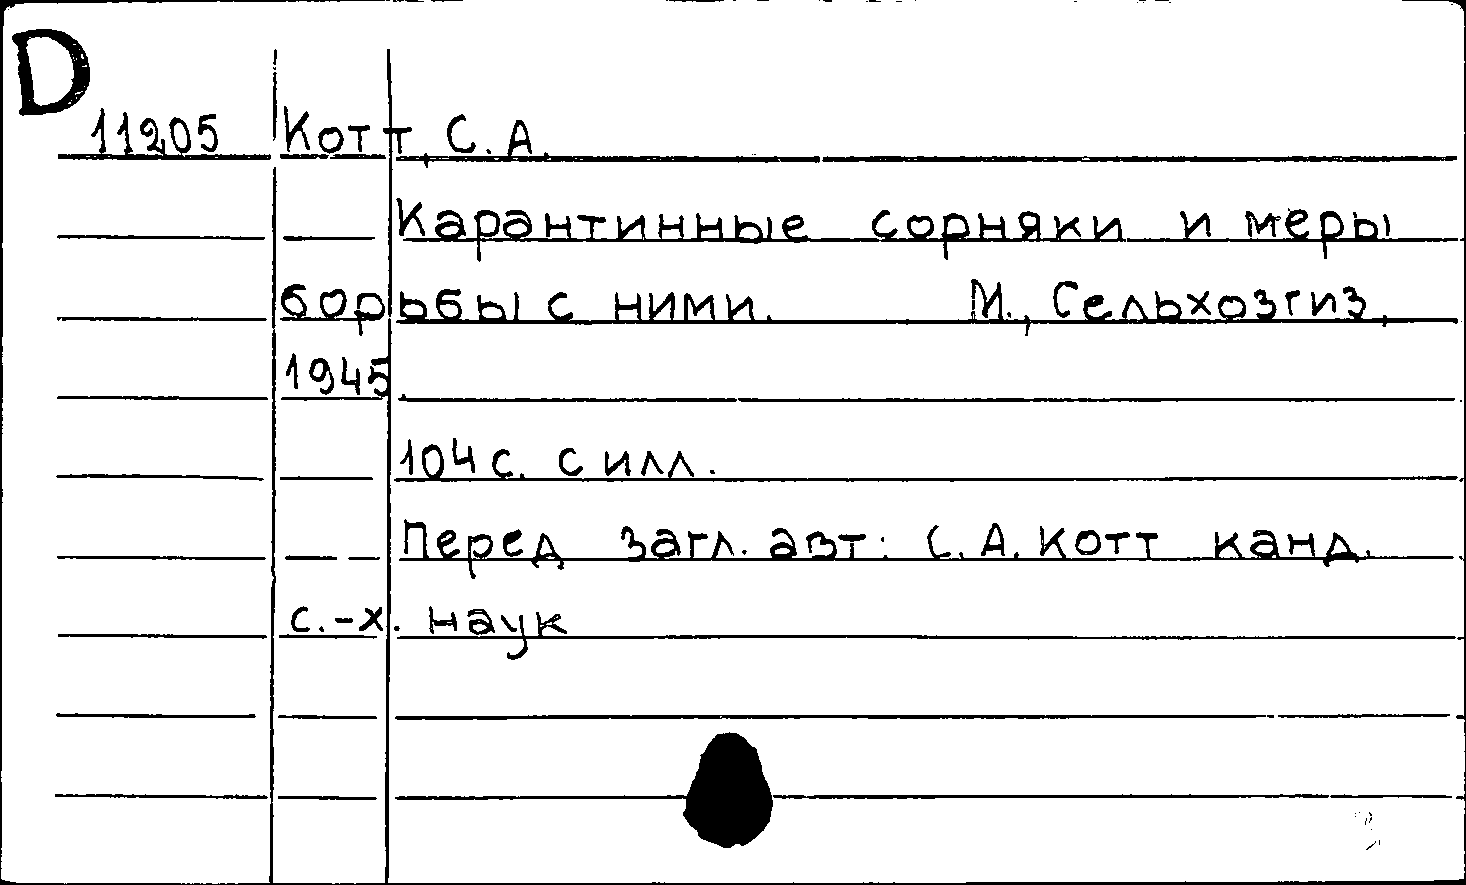 D
11205 Котт, С. А.
Карантинные сорняки и меры
борьбы с ними. М., Сельхозгиз,
1945.
104 с. с илл.
Перед загл. авт: С. А. Котт канд.
с.-х. наук